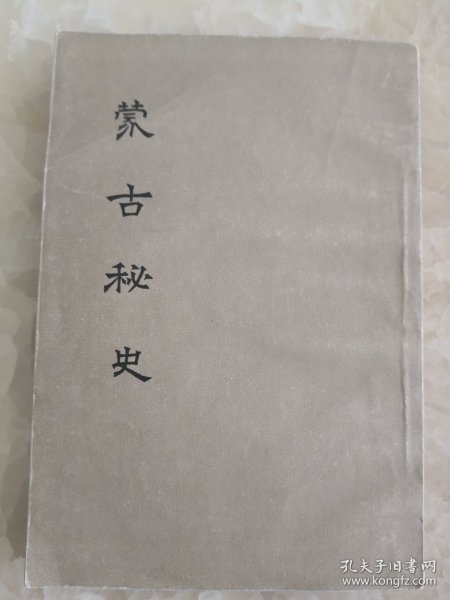 蒙古秘史
孔夫子旧书网
www.kongfz.com